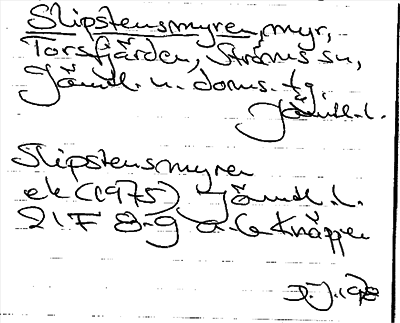 Slipstensmyren, myr,
Torsfjärden, Ströms sn,
Jämtl. n. doms. tg.
Jämtl. l.
Slipstensmyren
ek (1975) Jämtl. l.
21F 8-g a-b Knäppen